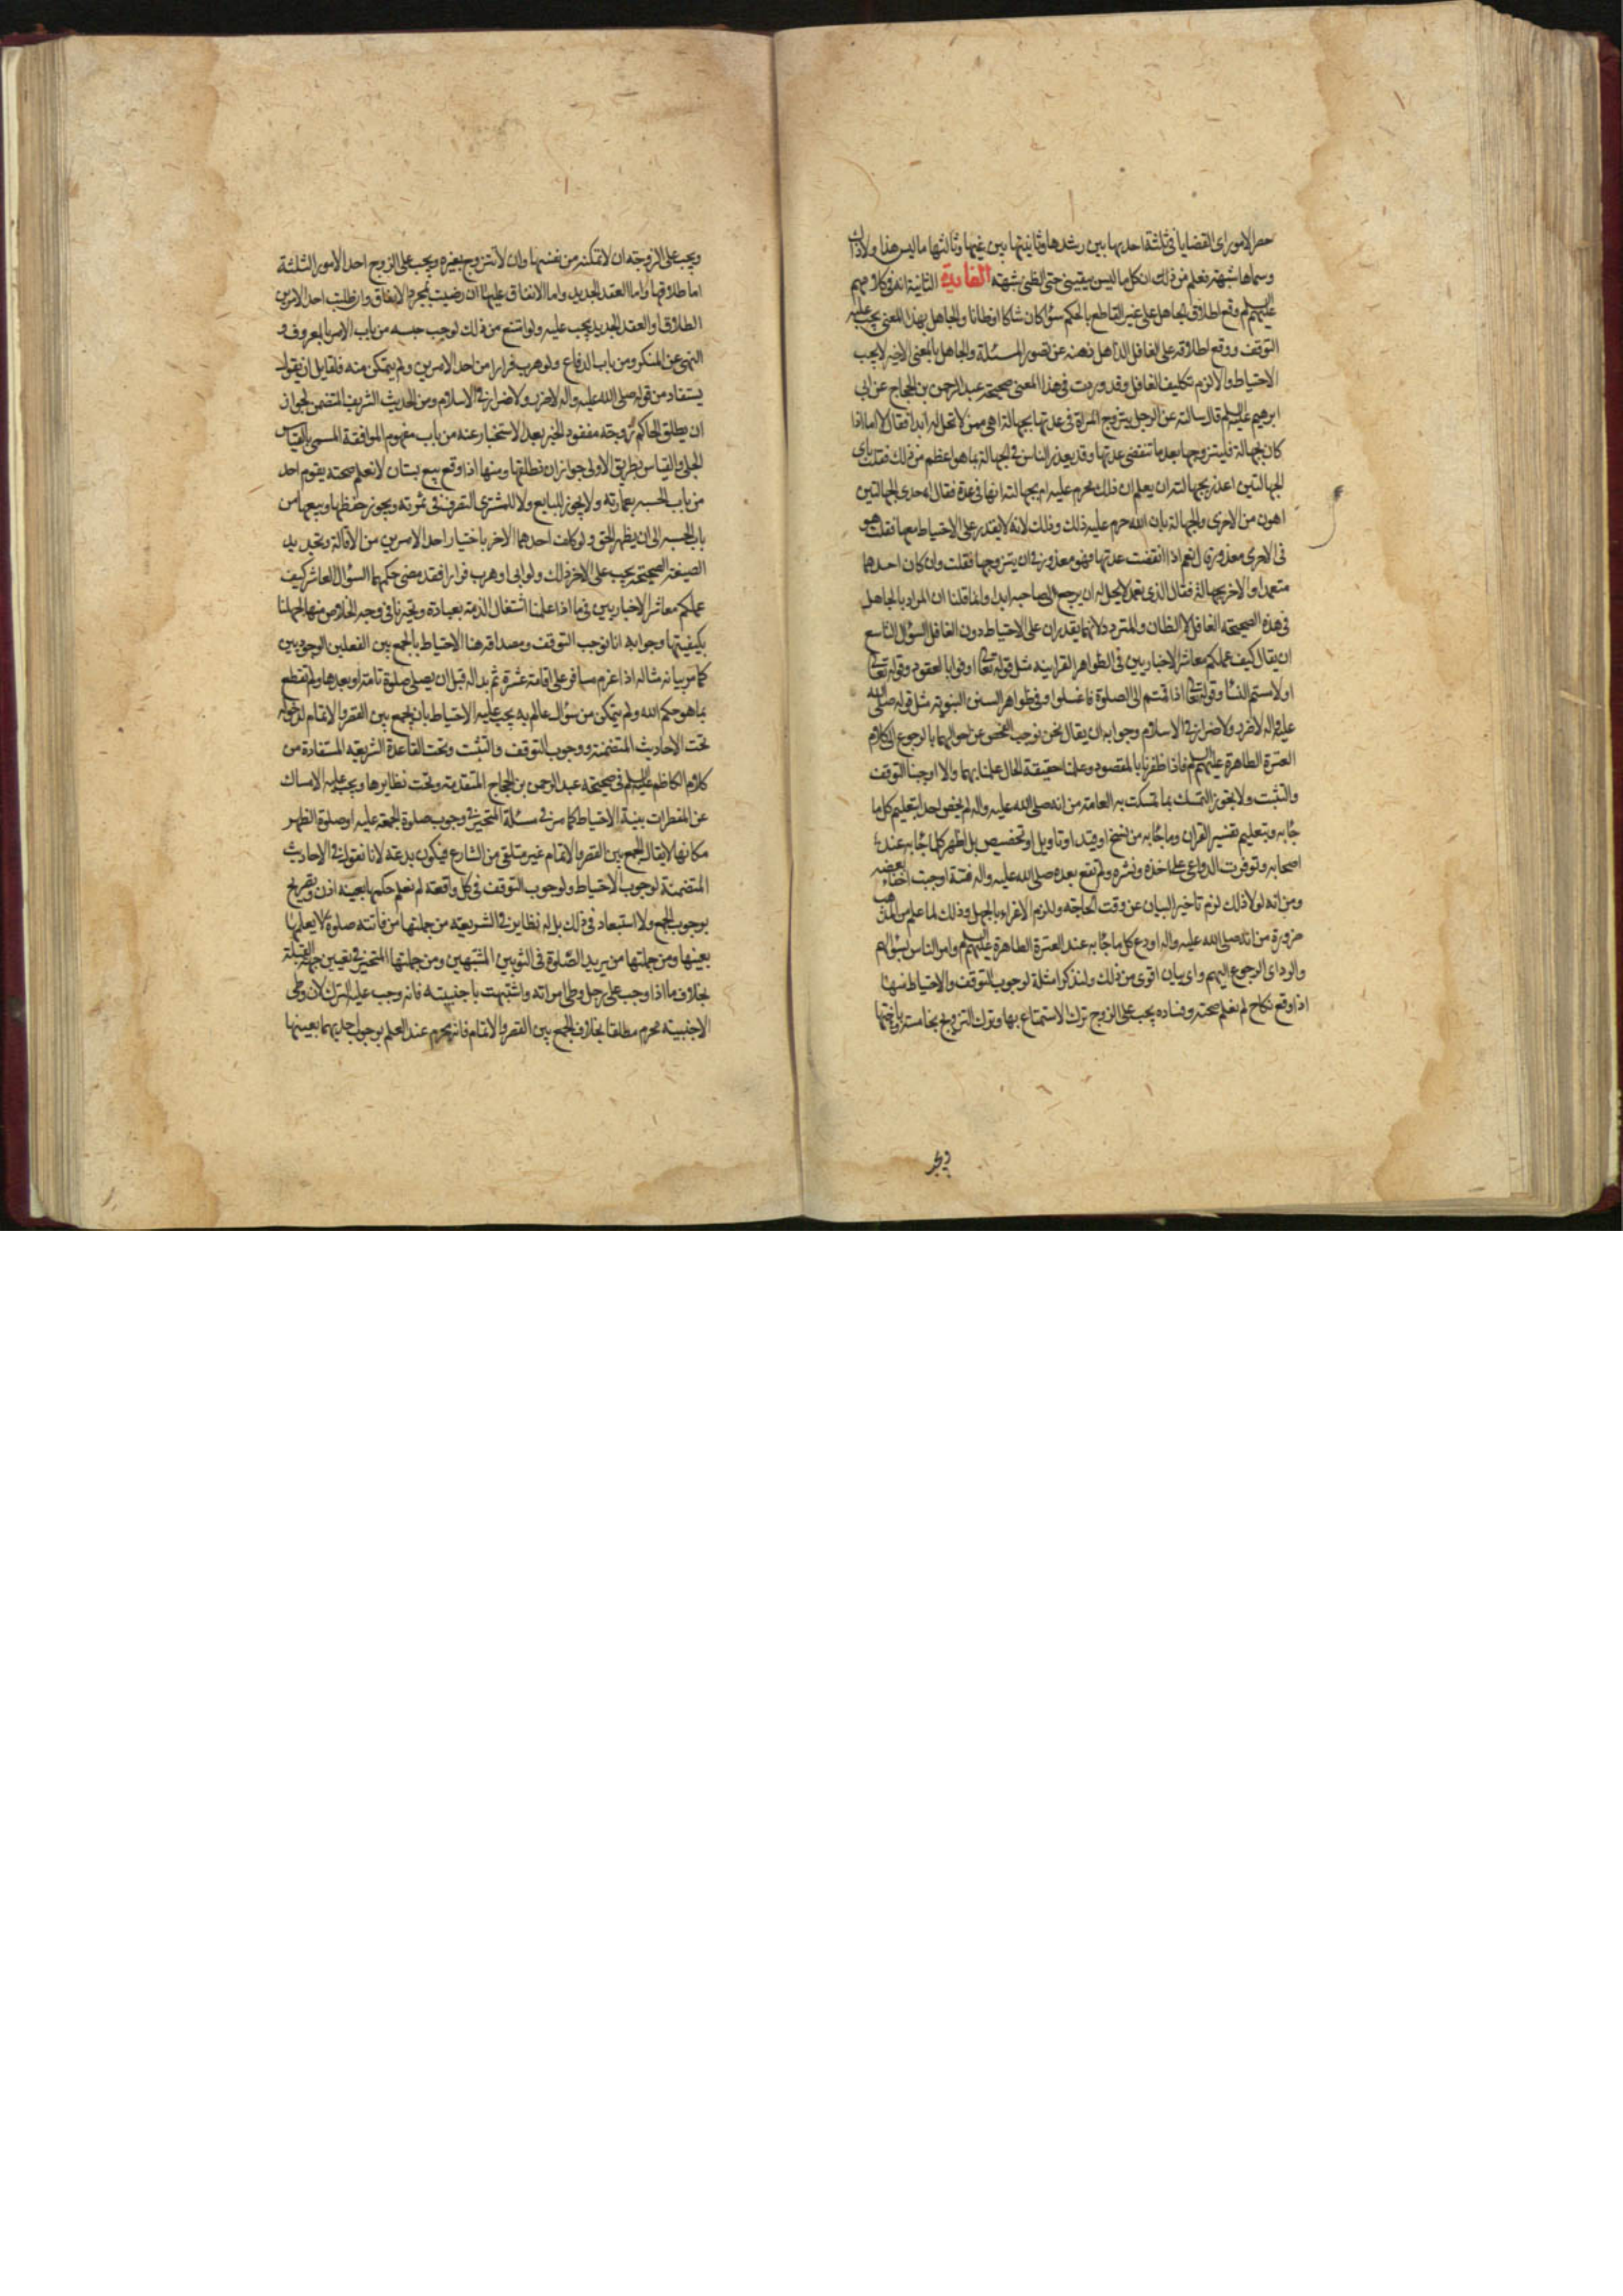 حصر الامور اى القضايا فى ثلثة احديها بين رشدها وثانيتها بين غيها وثالثها ما ليس هذا ولا ذاك
وسماها شبهة فعلم من ذلك ان كل ما ليس بيقينى حتى الظنى شبهة الفايدة الثانية انه فى كلامهم
عليهم السلم وقع اطلاق الجاهل على غير القاطع بالحكم سواء كان شاكا او ظانا والجاهل بهذا المعنى يجب عليه
التوقف ووقع اطلاقه على الغافل الذاهل ذهنه عن تصور المسئلة والجاهل بالمعنى الاخير لا يجب
الاحتياط والا لزم تكليف الغافل وقد وردت فى هذا المعنى صحيحة عبد الرحمن بن الحجاج عن ابى
ابرهيم عليه السلم قال سالته عن الرجل يتزوج المراة فى عدتها بجهالة اهى ممن لا تحل له ابدا فقال لا اما اذا
كان بجهالة فليتزوجها بعد ما تنقضى عدتها وقد يعذر الناس فى الجهالة بما هو اعظم من ذلك فقلت باى
الجهالتين اعذر بجهالته ان يعلم ان ذلك محرم عليه ام بجهالته انها فى عدة فقال احدى الجهالتين
اهون من الاخرى والجهالة بان الله حرم عليه ذلك وذلك لانه لا يقدر على الاحتياط معها فقلت هو
فى الاخرى معذور قال نعم اذا انقضت عدتها فهو معذور فى ان يتزوجها فقلت وان كان احدهما
متعمدا والاخر بجهالة فقال الذى تعمد لا يحل له ان يرجع الى صاحبه ابدا وانما قلنا ان المراد بالجاهل
فى هذه الصحيحة الغافل لا الظان والمتردد لانهما يقدران على الاحتياط دون الغافل السؤال التاسع
ان يقال كيف عملكم معاشر الاخباريين فى الظواهر القرانية مثل قوله تعالى اوفوا بالعقود وقوله تعالى
او لامستم النسا وقوله تعالى اذا قمتم الى الصلوة فاغسلوا وفى ظواهر السنن النبوية مثل قوله صلى الله
عليه واله لا ضرر ولا ضرار فى الاسلام وجوابه ان يقال نحن نوجب الفحص عن احوالهما بالرجوع الى كلام
العترة الطاهرة عليهم السلم فاذا ظفرنا بالمقصود وعلمنا حقيقة الحال عملنا بهما والا اوجبنا التوقف
والتثبت ولا يجوز التمسك بما تمسكت به العامة من انه صلى الله عليه واله لم يخص احدا بتعليم كل ما
جاء به وبتعليم تفسير القران وما جاء به من نسخ او قيد او تاويل او تخصيص بل اظهر كلما جاء به عند
اصحابه وتوفرت الدواعى على اخذه ونشره ولم تقع بعده صلى الله عليه واله فتنة اوجبت اخفاء بعضه
ومن انه لولا ذلك لزم تاخير البيان عن وقت الحاجة وللزم الاغراء بالجهل وذلك لما علم من المذهب
ضرورة من انه صلى الله عليه واله اودع كل ما جاء به عند العترة الطاهرة عليهم السلم وامر الناس بسؤالهم
والرد اى الرجوع اليهم واى بيان اقوى من ذلك ولنذكر امثلة لوجوب التوقف والاحتياط منها
اذا وقع نكاح لم نعلم صحته وفساده يجب على الزوج ترك الاستمتاع بها وترك التزويج بخامسة وباختها
ويجب على الزوجة ان لا تمكنه من نفسها وان لا تتزوج بغيره ويجب على الزوج احد الامور الثلثة
اما طلاقها واما العقد الجديد واما الانفاق عليها ان رضيت بمجرد الانفاق وان طلبت احد الامرين
الطلاق او العقد الجديد يجب عليه ولو امتنع من ذلك لوجب حبسه من باب الامر بالمعروف و
النهى عن المنكر ومن باب الدفاع ولو هرب فرارا من احد الامرين ولم يتمكن منه فلقايل ان يقول
يستفاد من قوله صلى الله عليه واله لا ضرر ولا ضرار فى الاسلام ومن الحديث الشريف المتضمن لجواز
ان يطلق الحاكم زوجة مفقود الخبر بعد الاستخبار عنه من باب مفهوم الموافقة المسمى بالقياس
الجلى والقياس بطريق الاولى جواز ان نطلقها ومنها اذا وقع بيع بستان لا نعلم صحته يقوم احد
من باب الحسبة بعمارته ولا يجوز للبايع ولا للمشترى التصرف فى ثمرته ويجوز حفظها وبيعها من
باب الحسبة الى ان يظهر الحق ولو كانت احدهما الاخر باختيار احد الامرين من الاقالة وتجديد
الصيغة الصحيحة يجب على الاخر ذلك ولو ابى او هرب فرارا فقد مضى حكمهما السؤال العاشر كيف
عملكم معاشر الاخباريين فى ما اذا علمنا اشتغال الذمة بعبادة وتحيرنا فى وجه الخلاص منها لجهلنا
بكيفيتها وجوابه انا نوجب التوقف ومصداقه هنا الاحتياط بالجمع بين الفعلين الوجوديين
كما مر بيانه مثاله اذا عزم مسافر على اقامة عشرة ثم بدا له قبل ان يصلى صلوة تامة او بعدها ولم نقطع
بما هو حكم الله ولم يتمكن من سؤال عالم به يجب عليه الاحتياط بان يجمع بين القصر والاتمام لدخوله
تحت الاحاديث المتضمنة ووجوب التوقف والتثبت وتحت القاعدة الشريفة المستفادة من
كلام الكاظم عليه السلم فى صحيحة عبد الرحمن بن الحجاج المتقدمة وتحت نظايرها ويجب عليه الامساك
عن المفطرات بنية الاحتياط كما مر فى مسئلة المتحير فى وجوب صلوة الجمعة عليه او صلوة الظهر
مكانها لا يقال الجمع بين القصر والاتمام غير متلقى من الشارع فيكون بدعة لانا نقول فى الاحاديث
المتضمنة لوجوب الاحتياط ولوجوب التوقف فى كل واقعة لم نعلم حكمها بعينه اذن وتصريح
بوجوب الجمع ولا استبعاد فى ذلك بل له نظاير فى الشريعة من جملتها من فاتته صلوة لا يعلمها
بعينها ومن جملتها من يريد الصلوة فى الثوبين المشتبهين ومن جملتها المتحير فى تعيين جهة القبلة
بخلاف ما اذا وجب على رجل وطى امراته واشتبهت باجنبية فانه وجب عليه الترك لان وطى
الاجنبية محرم مطلقا بخلاف الجمع بين القصر والاتمام فانه يحرم عند العلم بوجوب احديهما بعينها